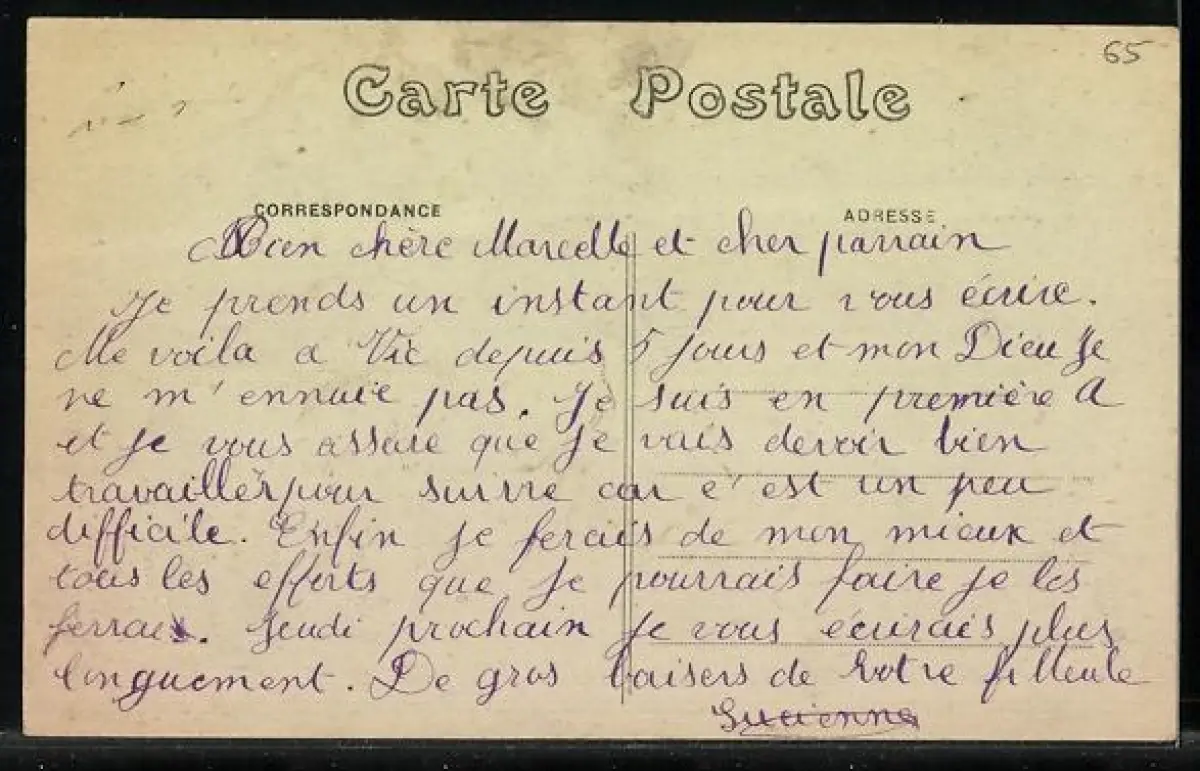 65
Carte Postale
CORRESPONDANCE ADRESSE
Bien chère Marcelle et cher parrain
Je prends un instant pour vous écrire.
Me voila a Vic depuis 5 jours et mon Dieu je
ne m'ennuie pas. Je suis en première A
et je vous assure que je vais devoir bien
travailler pour suivre car c'est un peu
difficile. Enfin je ferais de mon mieux et
tous les efforts que je pourrais faire je les
ferrai. Jeudi prochain je vous écirais plus
longuement. De gros baisers de votre filleule
Lucienne